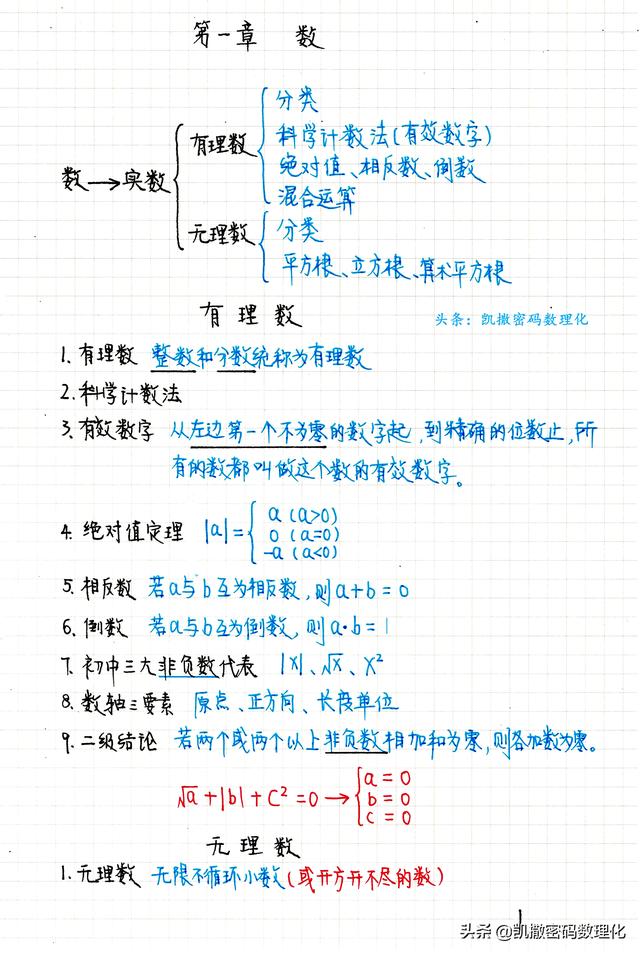 第一章 数
分类
有理数
科学计数法(有效数字)
绝对值、相反数、倒数
混合运算
数→实数
无理数
分类
平方根、立方根、算术平方根
有理数
头条：凯撒密码数理化
1.有理数 整数和分数统称为有理数
2.科学计数法
3.有效数字 从左边第一个不为零的数字起,到精确的位数止,所
有的数都叫做这个数的有效数字。
4.绝对值定理 |a|={ a (a>0)
0 (a=0)
-a (a<0)
5.相反数 若a与b互为相反数,则a+b=0
6.倒数 若a与b互为倒数,则a·b=1
7.初中三大非负数代表 |x|、√x、x²
8.数轴三要素 原点、正方向、长度单位
9.二级结论 若两个或两个以上非负数相加和为零,则各加数为零。
√a+|b|+c²=0→{ a=0
b=0
c=0
无理数
1.无理数 无限不循环小数(或开方开不尽的数)
1
头条 @凯撒密码数理化